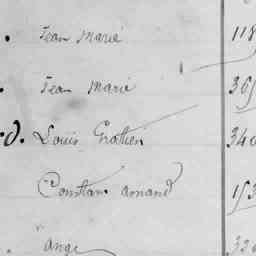 Jean Marie 118
Jean Marie 365
d. Louis Gratien 340
Constant amand 153
ange